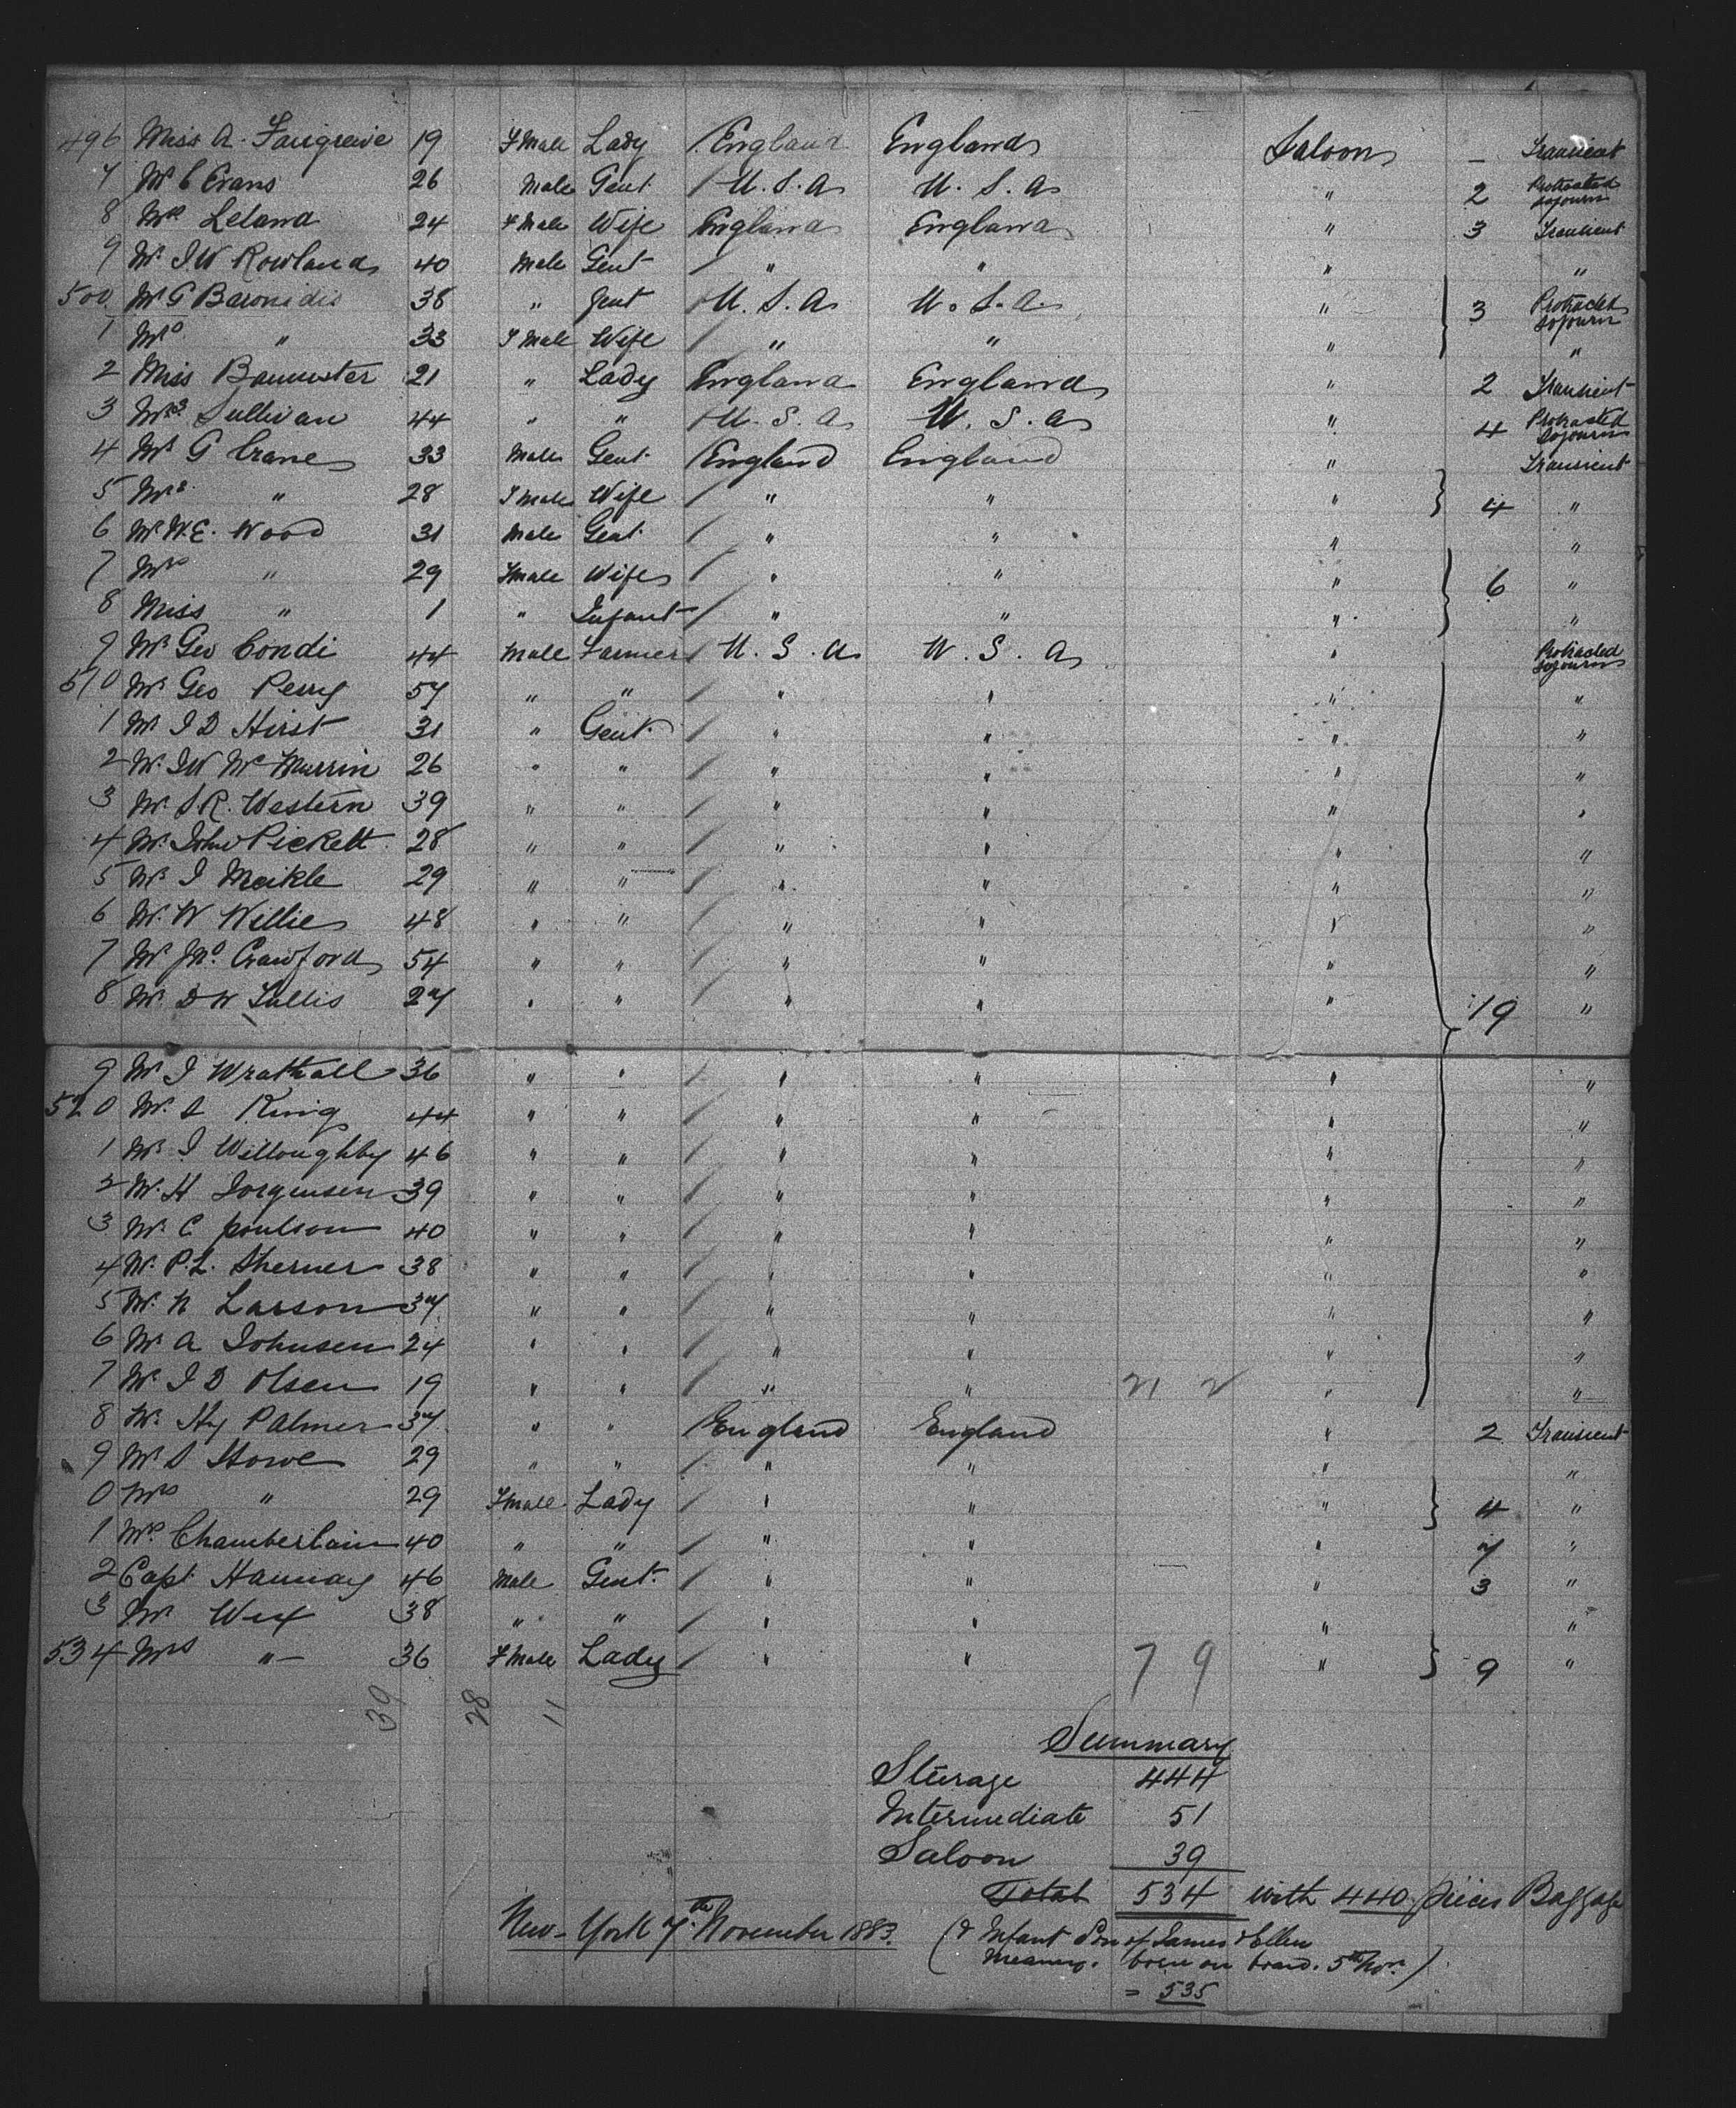 496 Miss A. Fairgreive 19 Fmale Lady England England Saloon — Transient
7 Mr C Evans 26 Male Gent. U.S.A U.S.A " 2 Protracted Sojourn
8 Mrs Leland 24 Fmale Wife England England " 3 Transient
9 Mr J.W Rowland 40 Male Gent " " " "
500 Mr G Baronidis 38 " Gent U.S.A U.S.A. " 3 Protracted Sojourn
1 Mrs " 33 Fmale Wife " " " "
2 Miss Bannister 21 " Lady England England " 2 Transient
3 Mrs Sullivan 44 " " U.S.A U.S.A " 4 Protracted Sojourn
4 Mr G Crane 33 Male Gent. England England " Transient
5 Mrs " 28 Fmale Wife " " " 4 "
6 Mr W.E. Wood 31 Male Gent. " " " "
7 Mrs " 29 Fmale Wife " " " 6 "
8 Miss " 1 " Infant " " " "
9 Mr Geo Condi 44 Male Farmer U.S.A U.S.A " Protracted Sojourn
510 Mr Geo Perry 57 " " " " " "
1 Mr J D Hirst 31 " Gent. " " " "
2 Mr J W McMurrin 26 " " " " " "
3 Mr S.R. Western 39 " " " " " "
4 Mr John Pickett 28 " " " " " "
5 Mr J Meikle 29 " " " " " "
6 Mr W Willie 48 " " " " " "
7 Mr Jno. Crawford 54 " " " " " "
8 Mr D W Tullis 27 " " " " " 19 "
9 Mr J Wrathall 36 " " " " " "
520 Mr S King 44 " " " " " "
1 Mr J Willoughby 46 " " " " " "
2 Mr H Jorgensen 39 " " " " " "
3 Mr C poulson 40 " " " " " "
4 Mr P.L. Sherner 38 " " " " " "
5 Mr N Larson 37 " " " " " "
6 Mr A Johnsen 24 " " " " " "
7 Mr J D Olsen 19 " " " " 21 2 " "
8 Mr Hy Palmer 37 " " England England " 2 Transient
9 Mr S Howe 29 " " " " " "
0 Mrs " 29 Fmale Lady " " " 4 "
1 Mrs Chamberlain 40 " " " " " 7 "
2 Capt. Hannay 46 Male Gent. " " " 3 "
3 Mr Wex 38 " " " " " "
534 Mrs " 36 Fmale Lady " " 7 9 " 9 "
39 28 11
Summary
Steerage 444
Intermediate 51
Saloon 39
Total 534 with 440 pieces Baggage
New-York 7th November 1883.
(& Infant Son of James & Ellen
born on board. 5th Nov.)
= 535